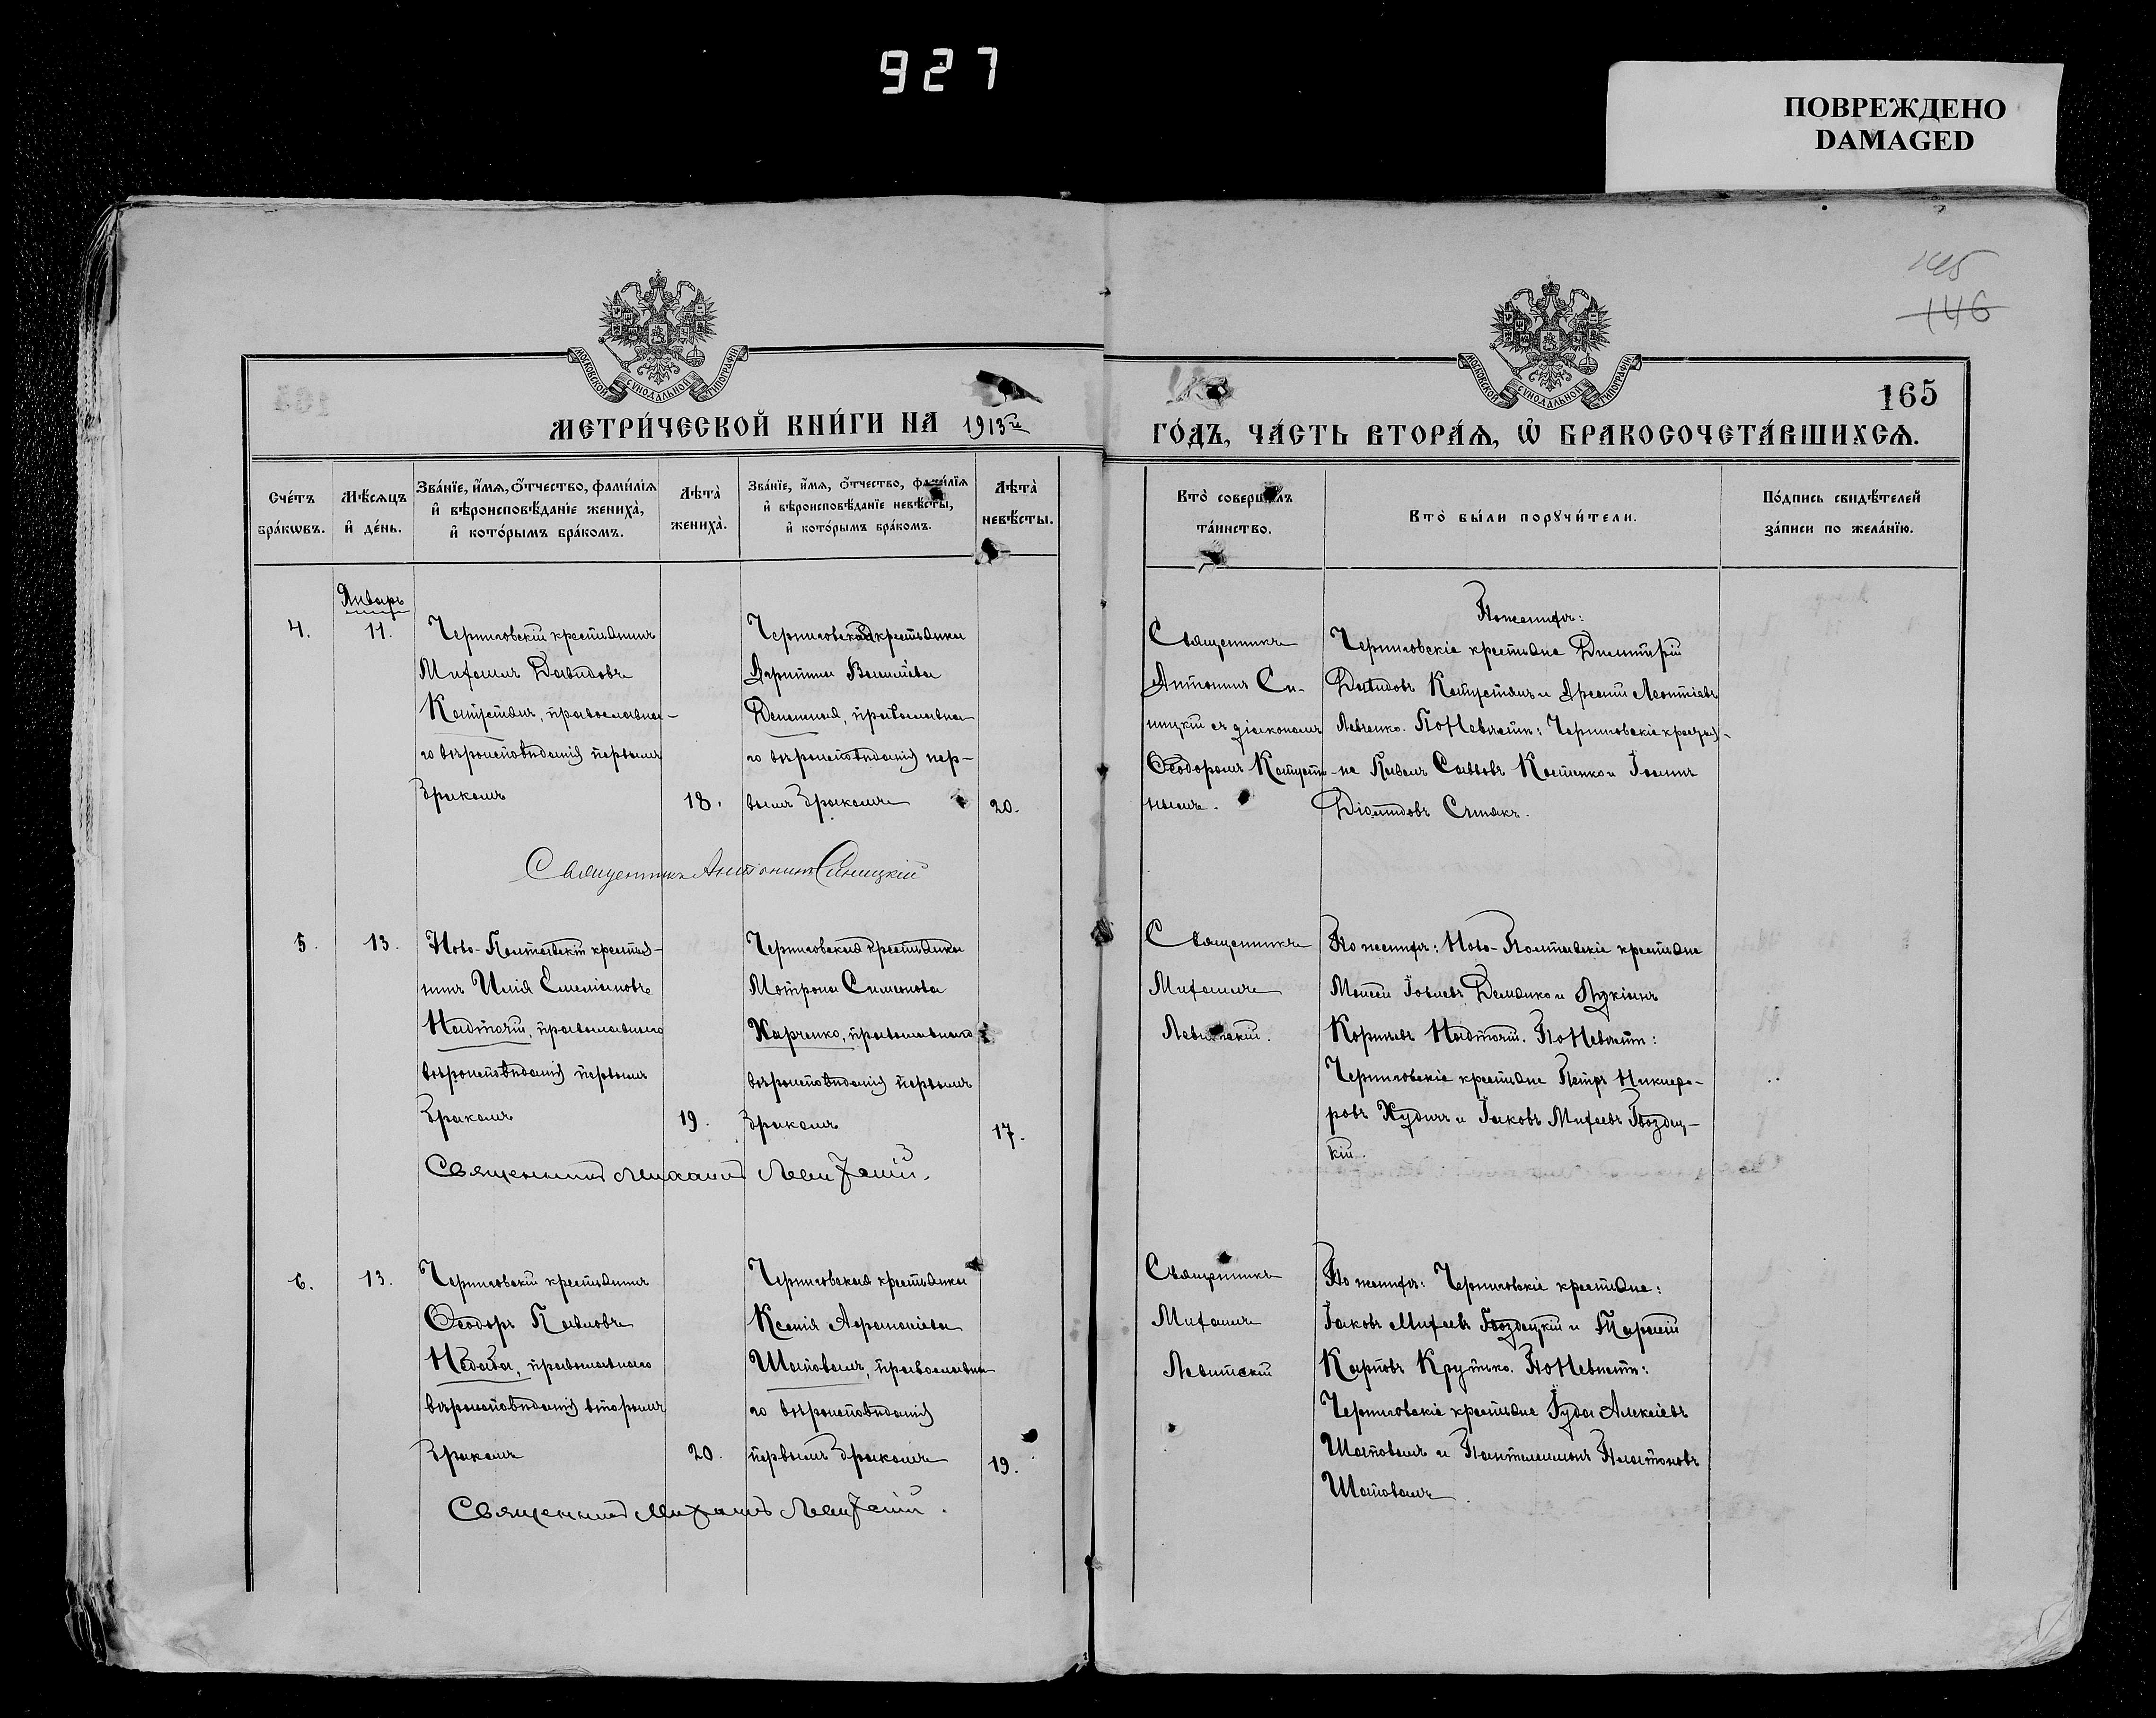 927
ПОВРЕЖДЕНО
DAMAGED
145
146
165
МОСКОВСКОЙ СѴНОДАЛЬНОЙ ТИПОГРАФІИ
МОСКОВСКОЙ СѴНОДАЛЬНОЙ ТИПОГРАФІИ
МЕТРИ́ЧЕСКОЙ КНИ́ГИ НА 1913й
ГО́ДЪ, ЧА́СТЬ ВТОРА́Ѧ, Ѡ҆ БРАКОСОЧЕТА́ВШИХСѦ.
Сче́тъ бра́кѡвъ.
Мѣ́сѧцъ и҆ де́нь.
Зва́нїе, и҆́мѧ, ѻ҆́тчество, фами́лїѧ и҆ вѣроисповѣ́данїе жениха̀, и҆ кото́рымъ бра́комъ.
Лѣ́та̀ жениха̀.
Зва́нїе, и҆́мѧ, ѻ҆́тчество, фами́лїѧ и҆ вѣроисповѣ́данїе невѣ́сты, и҆ кото́рымъ бра́комъ.
Лѣ́та̀ невѣ́сты.
Кто̀ соверши́лъ та́инство.
Кто̀ бы́ли порꙋчи́тели.
По́дпись свидѣ́телей за́писи по жела́нїю.
Январь
4.
11.
Черниговскій крестьянинъ
Михаилъ Давидовъ
Капустянъ, православна-
го вѣроисповѣданія первымъ
бракомъ
18.
Черниговская крестьянка
Васильева
православна-
го вѣроисповѣданія пер-
вымъ бракомъ
20.
Священникъ
Антонинъ Си-
ницкій съ діакономъ
Ѳеодоромъ Капустя-
нымъ.
По женихѣ:
Черниговскіе крестьяне Димитрій
Давидовъ Капустянъ и Леонтіевъ
Левченко. По невѣстѣ: Черниговскіе крестья-
не Павелъ Саввовъ Костенко и Іоаннъ
Священникъ Антонинъ Синицкій
5.
13.
Ново-Полтавскій крестья-
нинъ Илія Емеліановъ
Надточій, православнаго
вѣроисповѣданія первымъ
бракомъ
19.
Черниговская крестьянка
Мотрона Симеонова
Харченко, православнаго
вѣроисповѣданія первымъ
бракомъ
17.
Священникъ
Михаилъ
Левитскій.
По женихѣ: Ново-Полтавскіе крестьяне
Моисей Іовлевъ Демянко и Лукіанъ
Корніевъ Надточій. По невѣстѣ:
Черниговскіе крестьяне Петръ Никифо-
ровъ Худичъ и Іаковъ Михеевъ Гвоздец-
кій.
Священникъ Михаилъ Левитскій.
6.
13.
Черниговскій крестьянинъ
Ѳеодоръ Павловъ
православнаго
вѣроисповѣданія вторымъ
бракомъ
20.
Черниговская крестьянка
Ксенія Аѳанасіева
Шаповалъ, православна-
го вѣроисповѣданія
первымъ бракомъ
19.
Священникъ
Михаилъ
Левитскій
По женихѣ: Черниговскіе крестьяне:
Іаковъ Михеевъ Гвоздецкій и Тарасій
Карповъ Крутько. По невѣстѣ:
Черниговскіе крестьяне Іуда Алексіевъ
Шаповалъ и Пантелеимонъ Платоновъ
Шаповалъ.
Священникъ Михаилъ Левитскій.